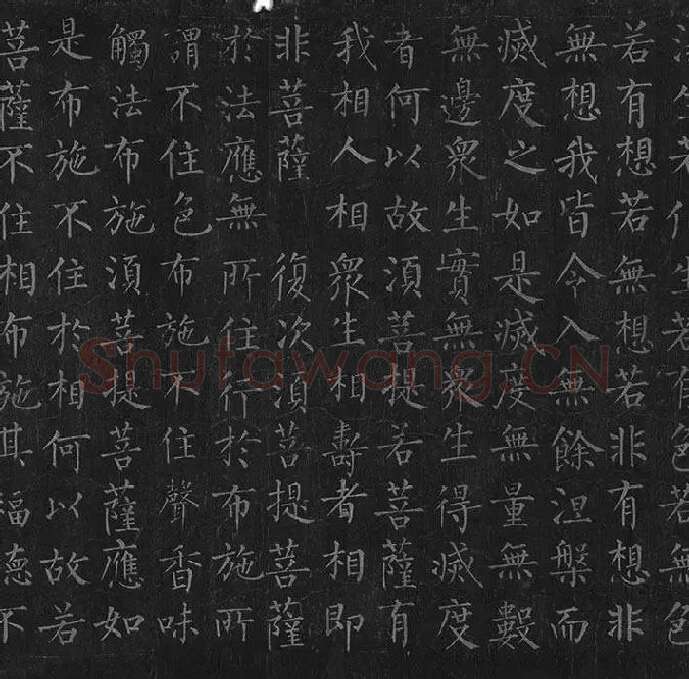 生若化生若有色若無色
若有想若無想若非有想非
無想我皆令入無餘涅槃而
滅度之如是滅度無量無數
無邊衆生實無衆生得滅度
者何以故須菩提若菩薩有
我相人相衆生相壽者相即
非菩薩 復次須菩提菩薩
於法應無所住行於布施所
謂不住色布施不住聲香味
觸法布施須菩提菩薩應如
是布施不住於相何以故若
菩薩不住相布施其福德不
Shufawang.CN